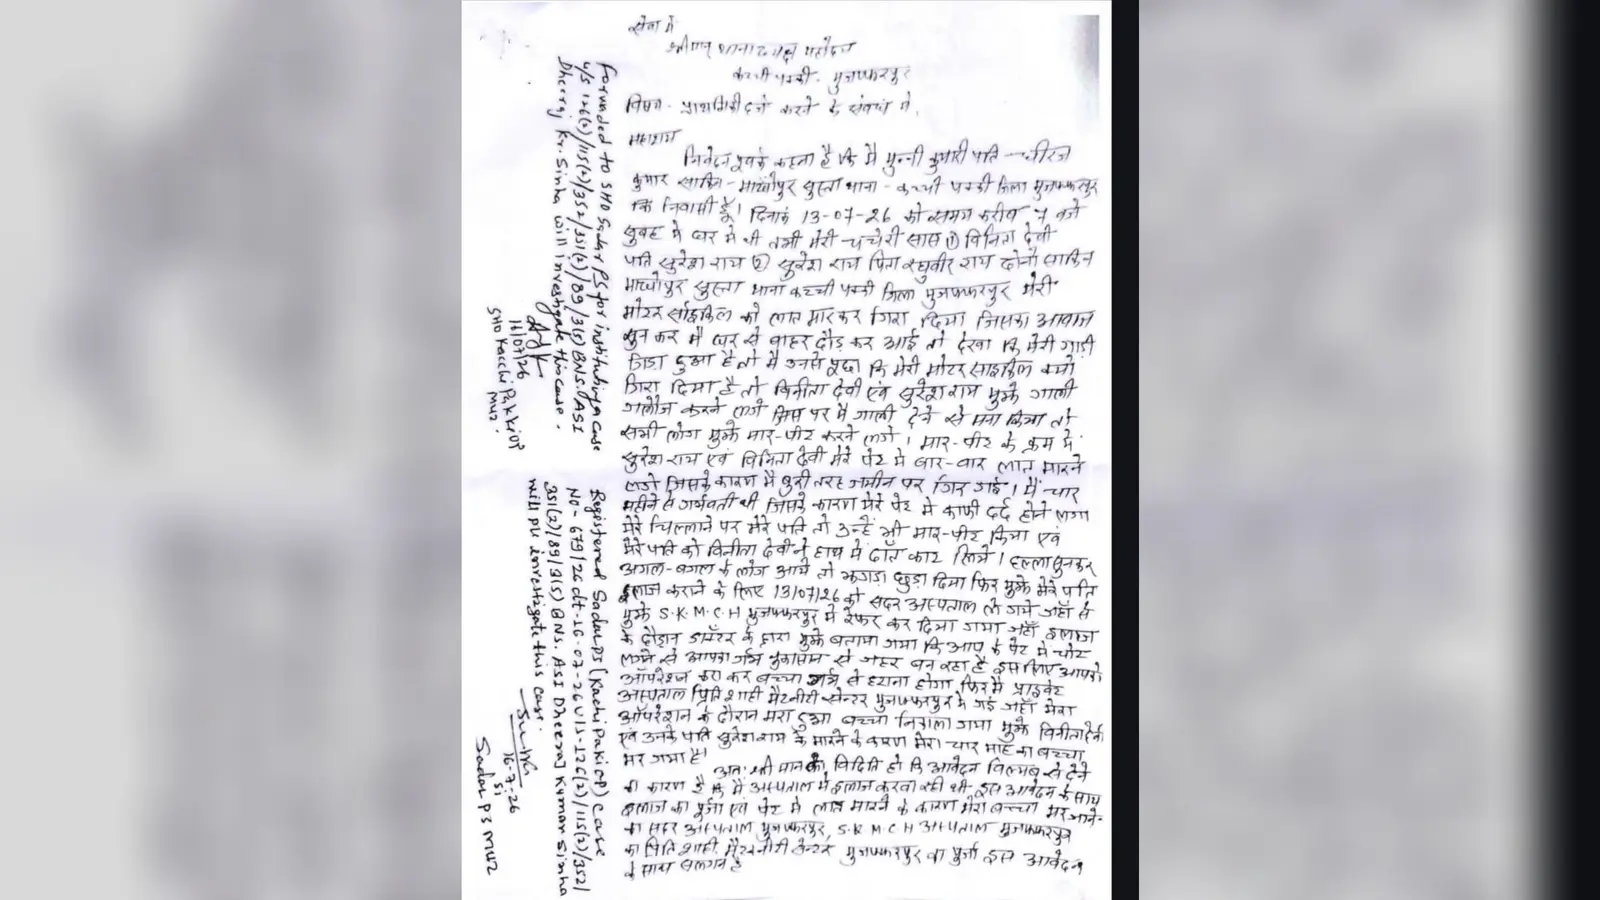 सेवा में
श्रीमान् थानाध्यक्ष महोदय
कच्ची पक्की, मुजफ्फरपुर
विषय - प्राथमिकी दर्ज करने के संबंध में,
महाशय
निवेदन पूर्वक कहना है कि मैं मुन्नी कुमारी पति - धीरज
कुमार साकिन - माधोपुर सुस्ता थाना - कच्ची पक्की जिला मुजफ्फरपुर
कि निवासी हूँ। दिनांक 13-07-26 को समय करीब 7 बजे
सुबह मे घर मे थी तभी मेरी चचेरी सास ① विनिता देवी
पति सुरेश राय ② सुरेश राय पिता रघुवीर राय दोनो साकिन
माधोपुर सुस्ता थाना कच्ची पक्की जिला मुजफ्फरपुर मेरी
मोटर साईकिल को लात मारकर गिरा दिया जिसका आवाज
सुन कर मै घर से बाहर दौड़ कर आई तो देखा कि मेरी गाड़ी
गिरा हुआ है तो मै उनसे पूछा कि मेरी मोटर साइकिल क्यो
गिरा दिया है तो विनीता देवी एवं सुरेश राय मुझे गाली
गलौज करने लगे जिस पर मै गाली देने से मना किया तो
सभी लोग मुझे मार-पीट करने लगे। मार-पीट के क्रम में
सुरेश राय एवं विनिता देवी मेरे पेट मे बार-बार लात मारने
लगे जिसके कारण मै बुरी तरह जमीन पर गिर गई। मैं चार
महीने से गर्भवती थी जिसके कारण मेरे पेट मे काफी दर्द होने लगा
मेरे चिल्लाने पर मेरे पति तो उन्हें भी मार-पीट किया एवं
मेरे पति को विनीता देवी ने हाथ मे दाँत काट लिये। हल्ला सुनकर
अगल-बगल के लोग आये तो झगड़ा छुड़ा दिया फिर मुझे मेरे पति
इलाज कराने के लिए 13/07/26 को सदर अस्पताल ले गये जहाँ से
मुझे S.K.M.C.H मुजफ्फरपुर मे रेफर कर दिया गया जहाँ इलाज
के दौरान डॉक्टर के द्वारा मुझे बताया गया कि आप के पेट मे चोट
लगने से आपका गर्भ नुकसान से जहर बन रहा है इस लिए आपको
ऑपरेशन करा कर बच्चा गर्भ से हटाना होगा फिर मै प्राइवेट
अस्पताल प्रिति शाही मैटर्नीटी सेन्टर मुजफ्फरपुर मे गई जहाँ मेरा
ऑपरेशन के दौरान मरा हुआ बच्चा निकाला गया मुझे विनीता देवी
एवं उनके पति सुरेश राय के मारने के कारण मेरा चार माह का बच्चा
मर गया है।
अतः श्री मान को विदित हो कि आवेदन विलम्ब से देने
का कारण है कि मै अस्पताल मे इलाज करवा रही थी इस आवेदन के साथ
इलाज का पुर्जा एवं पेट मे लात मारने के कारण मेरा बच्चा मर जाने
का सदर अस्पताल मुजफ्फरपुर, S.K.M.C.H अस्पताल मुजफ्फरपुर
का प्रिति शाही मैटरनीटी सेन्टर मुजफ्फरपुर का पुर्जा इस आवेदन
के साथ संलग्न है
Forwarded to SHO Sadar PS for instituting a case
u/s 126(2)/115(2)/352/351(2)/89/3(5) BNS. ASI
Dheeraj Kr. Sinha will investigate this case.
16/07/26
SHO Kacchi Pakki OP
Muz.
Registered Sadar PS (Kachi Pakki OP) Case
No - 679/26 dt-16-07-26 U/S-126(2)/115(2)/352/
351(2)/89/3(5) BNS. ASI Dheeraj Kumar Sinha
will plz investigate this case.
16-7-26
SI
Sadar PS Muz